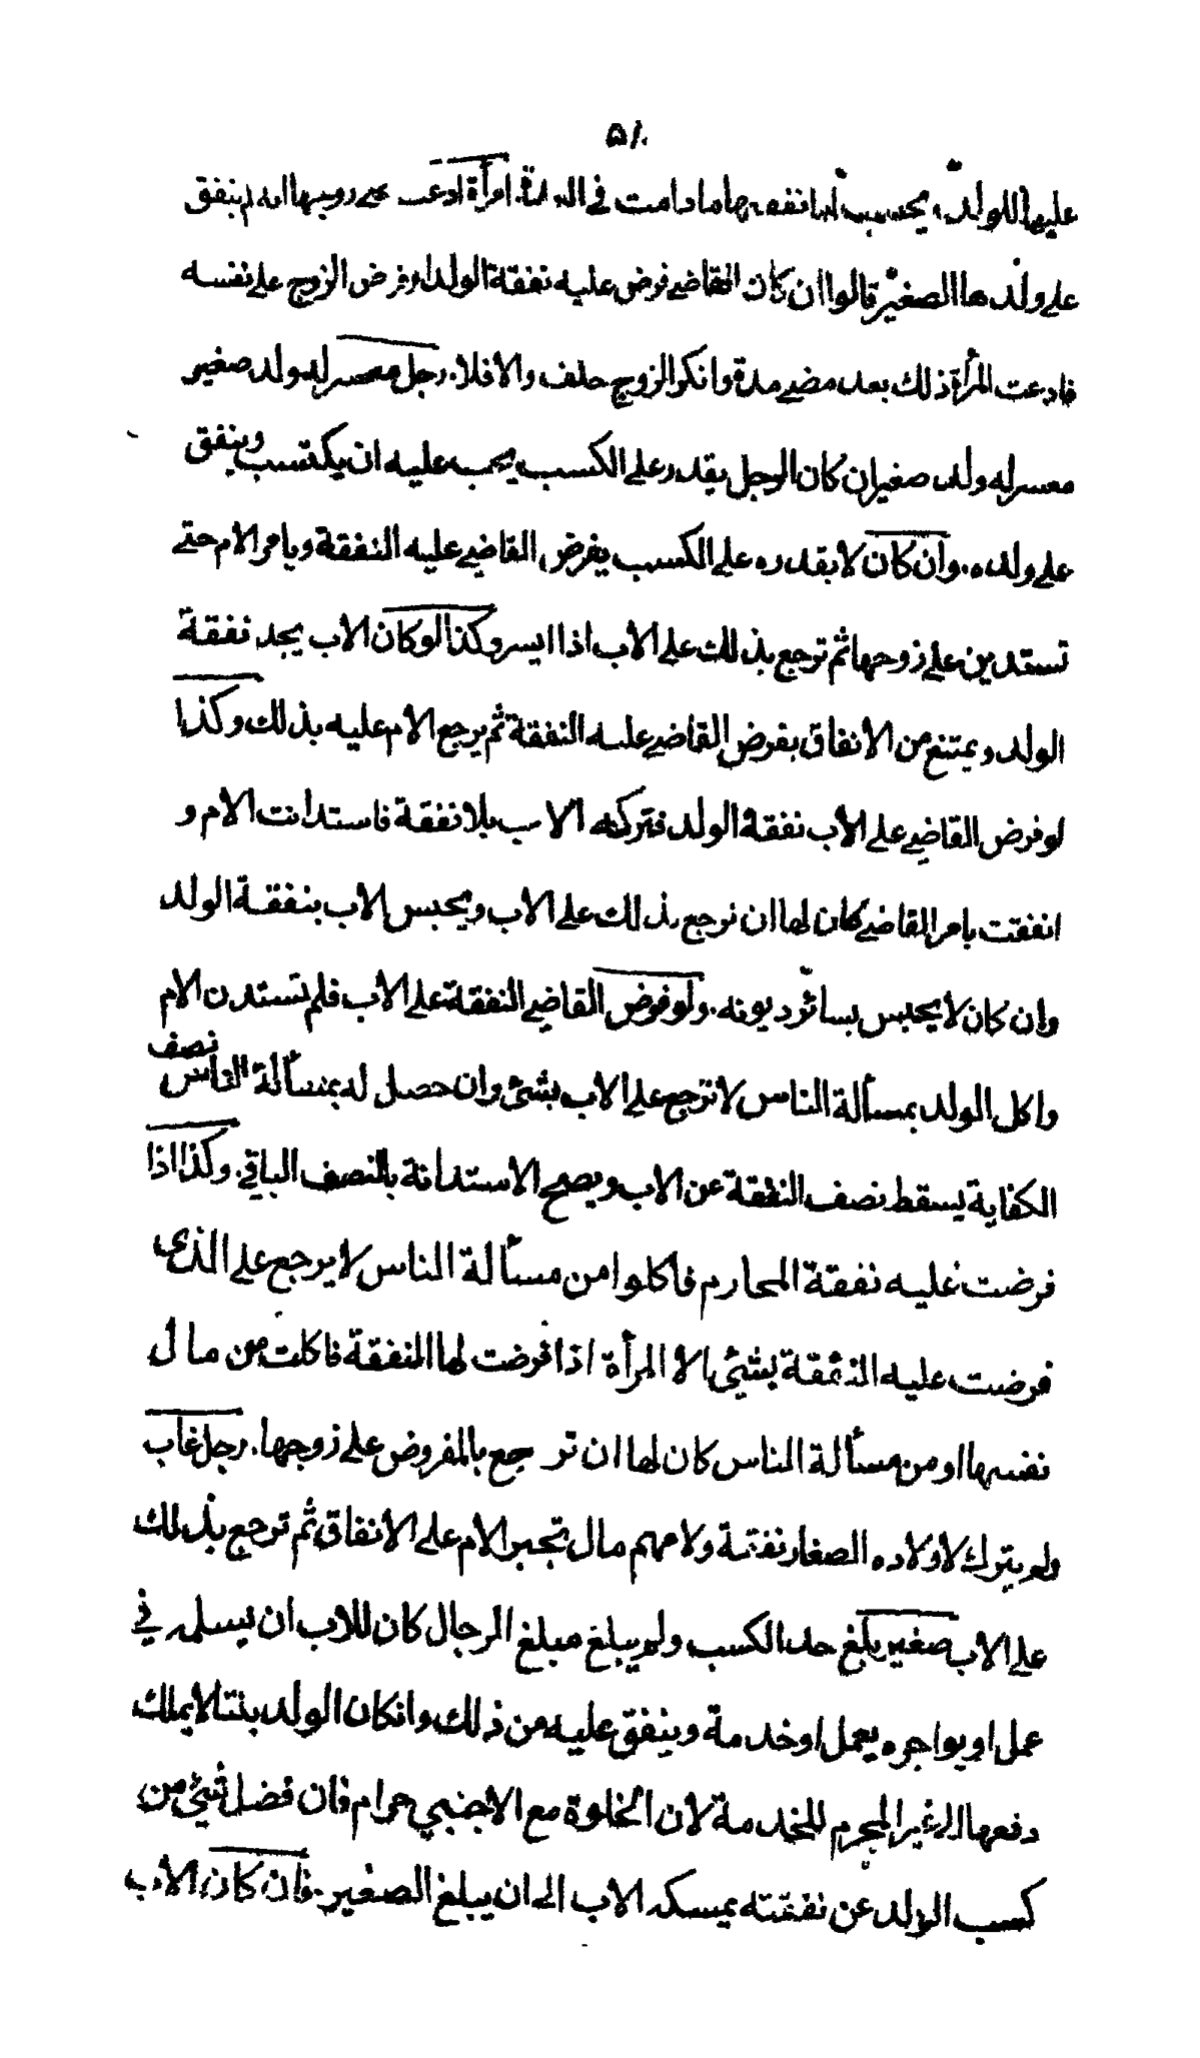 ۵۱۰
عليها للولد يحسب لها نفقتها ما دامت في العدة. امرأة ادعت على زوجها انه لم ينفق
على ولدها الصغير قالوا ان كان القاضي فرض عليه نفقة الولد او فرض الزوج على نفسه
فادعت المرأة ذلك بعد مضي مدة وانكر الزوج حلف والا فلا. رجل معسر له ولد صغير
معسر له ولد صغير ان كان الرجل يقدر على الكسب يجب عليه ان يكتسب وينفق
على ولده. وان كان لا يقدره على الكسب يفرض القاضي عليه النفقة ويامر الام حتى
تستدين على زوجها ثم ترجع بذلك على الأب اذا ايسر وكذا لو كان الاب يجد نفقة
الولد ويمتنع من الانفاق يفرض القاضي عليه النفقة ثم يرجع الام عليه بذلك وكذا
لو فرض القاضي على الأب نفقة الولد فتركه الاب بلا نفقة فاستدانت الام و
انفقت بامر القاضي كان لها ان ترجع بذلك على الاب ويحبس الاب بنفقة الولد
وان كان لا يحبس بسائر ديونه. ولو فرض القاضي النفقة على الأب فلم تستدن الام
واكل الولد بمسألة الناس لا ترجع على الاب بشئ وان حصل له بمسألة الناس نصف
الكفاية يسقط نصف النفقة عن الاب ويصح الاستدانة بالنصف الباقي. وكذا اذا
فرضت عليه نفقة المحارم فاكلوا من مسألة الناس لا يرجع على الذى
فرضت عليه النفقة بشئ الا المرأة اذا فرضت لها النفقة فاكلت من مال
نفسها او من مسألة الناس كان لها ان ترجع بالمفروض على زوجها. رجل غاب
ولم يترك لاولاده الصغار نفقة ولامهم مال تجبر الام على الانفاق ثم ترجع بذلك
على الاب صغير بلغ حد الكسب ولم يبلغ مبلغ الرجال كان للاب ان يسلمه في
عمل او يواجره يعمل او خدمة وينفق عليه من ذلك وانكان الولد بنتا لا يملك
دفعها الى غير المحرم للخدمة لان الخلوة مع الأجنبي حرام فان فضل شئ من
كسب الولد عن نفقته يمسكه الاب الى ان يبلغ الصغير. فان كان الأب